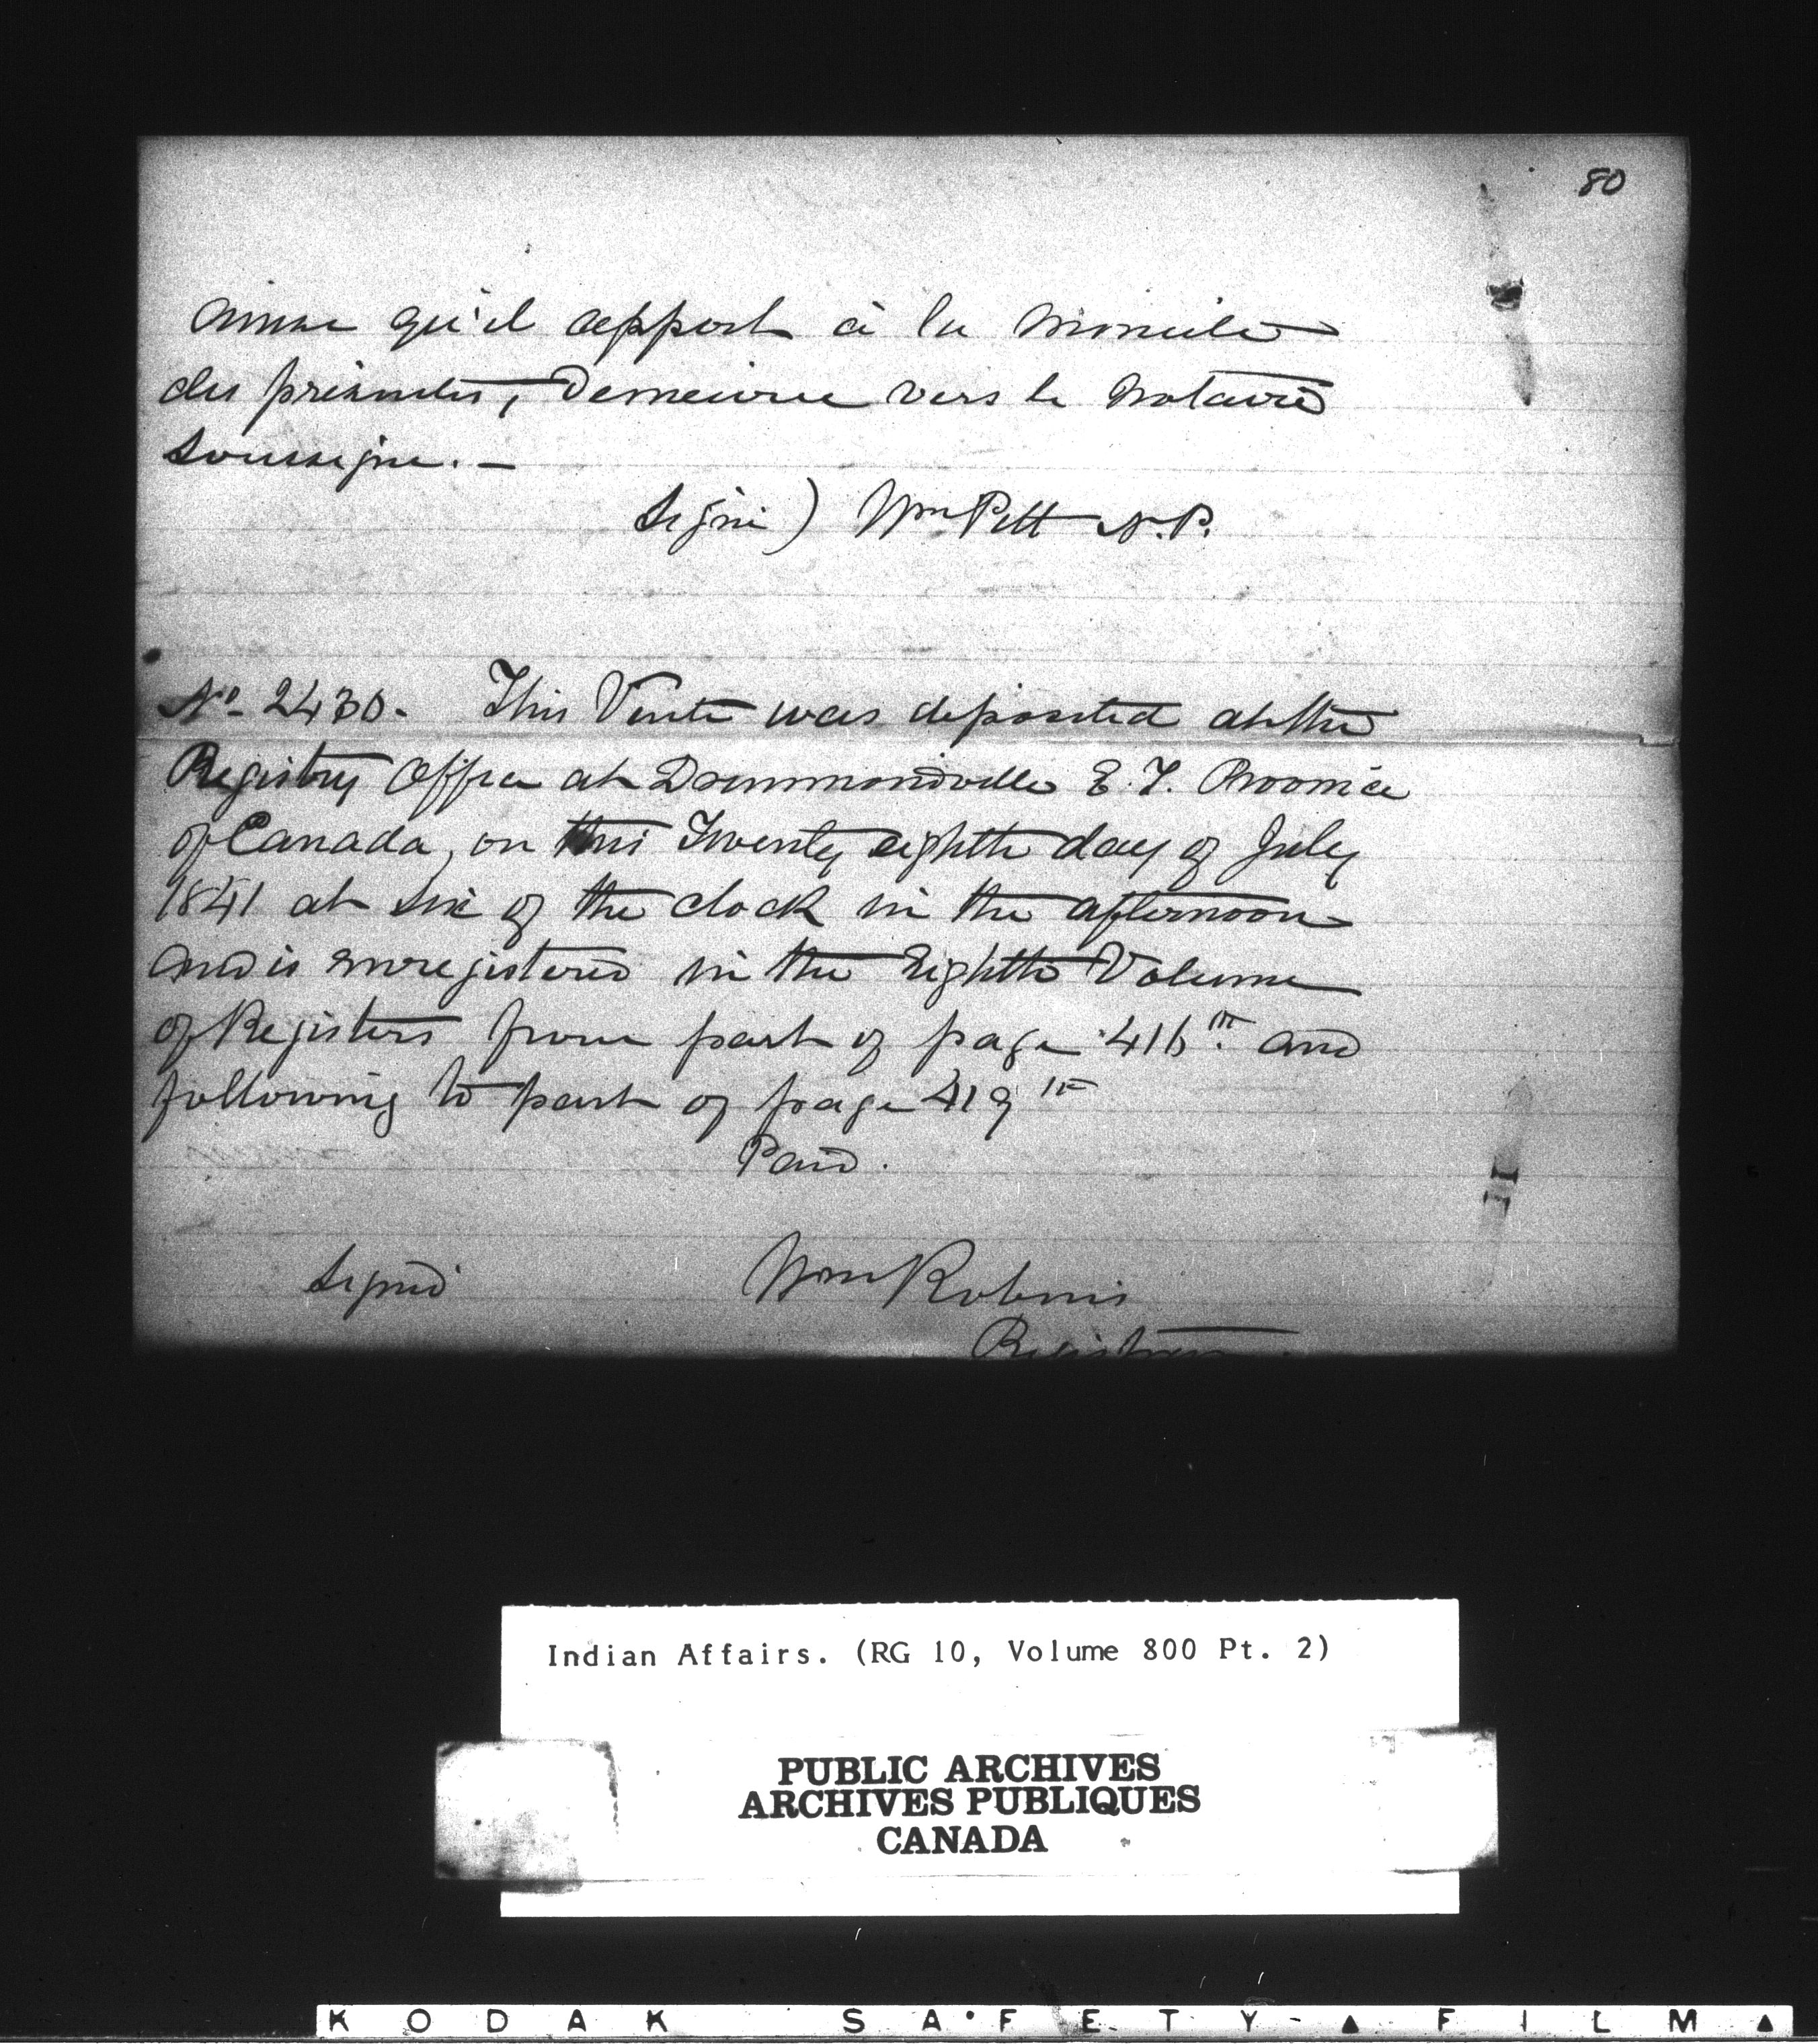 80
ainsi qu'il appert à la minute
des présentes, Demeurée vers le Notaire
Soussigné. –
Signé) Wm Pitt N.P.
No. 2430. This Vente was deposited at the
Registry Office at Drummondville E. T. Province
of Canada, on this Twenty eighth day of July
1841 at six of the clock in the afternoon
and is enregistered in the Eighth Volume
of Registers from part of page 416th and
following to part of page 419th
Paid.
Signed Wm Robins
Registrar
Indian Affairs. (RG 10, Volume 800 Pt. 2)
PUBLIC ARCHIVES
ARCHIVES PUBLIQUES
CANADA
KODAK SAFETY FILM